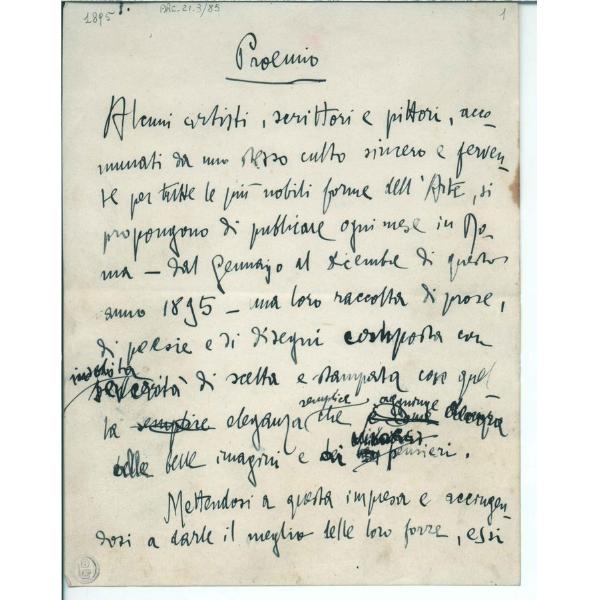 1895
ARC. 21.3/85
1
Proemio
Alcuni artisti, scrittori e pittori, acco-
munati da uno stesso culto sincero e ferven-
te per tutte le più nobili forme dell'Arte, si
propongono di publicare ogni mese in Ro-
ma – dal Gennajo al Dicembre di questo
anno 1895 – una loro raccolta di prose,
di poesie e di disegni composta con
insolita
severità di scelta e stampata con quel
semplice
la semplice eleganza che aggiunge
delle belle imagini e dei pensieri.
Mettendosi a questa impresa e accingen-
dosi a darle il meglio delle loro forze, essi